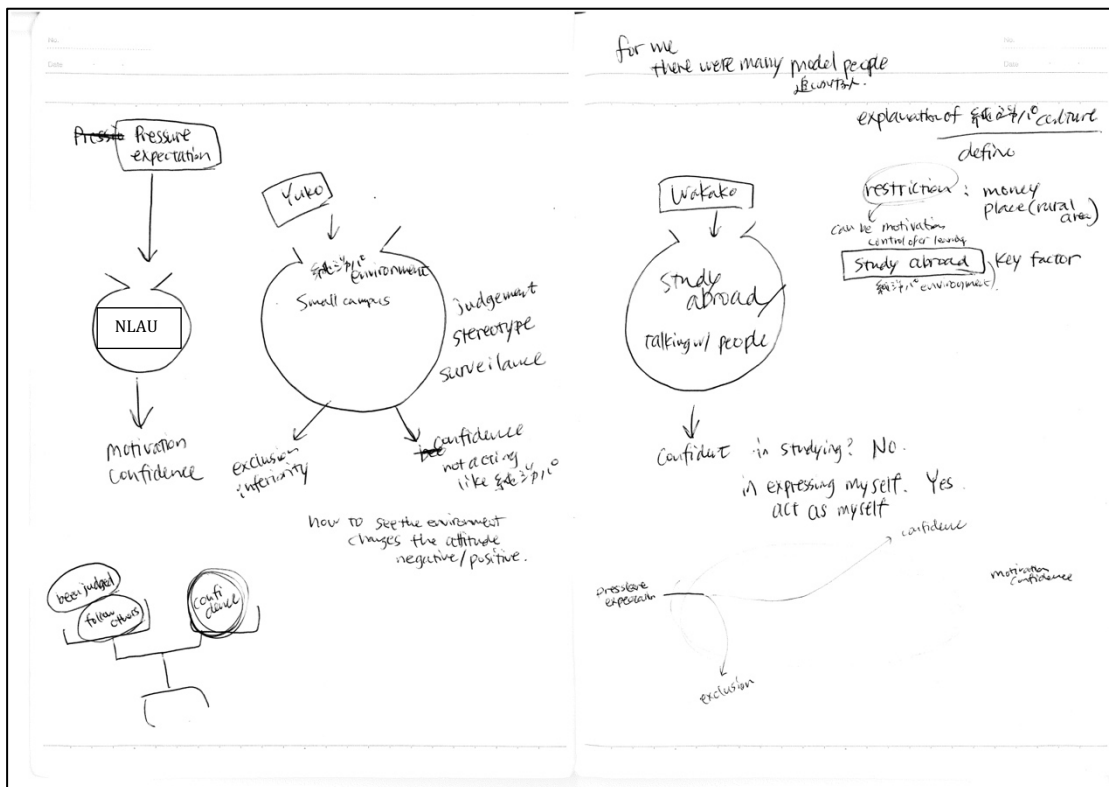 No.
Date
Pressure
expectation
NLAU
motivation
confidence
Yuko
純ジャパ environment
Small campus
judgement
stereotype
surveilance
exclusion
inferiority
confidence
not acting
like 純ジャパ
how to see the environment
changes the attitude
negative/positive.
been judged
follow
others
confi
dence
No.
Date
for me
there were many model people
追いつけない.
explanation of 純ジャパ culture
define
restriction : money
place (rural
area)
can be motivation
control of learning
study abroad
key factor
純ジャパ environment
Wakako
study
abroad
talking w/ people
Confident in studying? No.
in expressing myself. Yes
act as myself
confidence
pressure
expectation
motivation
confidence
exclusion